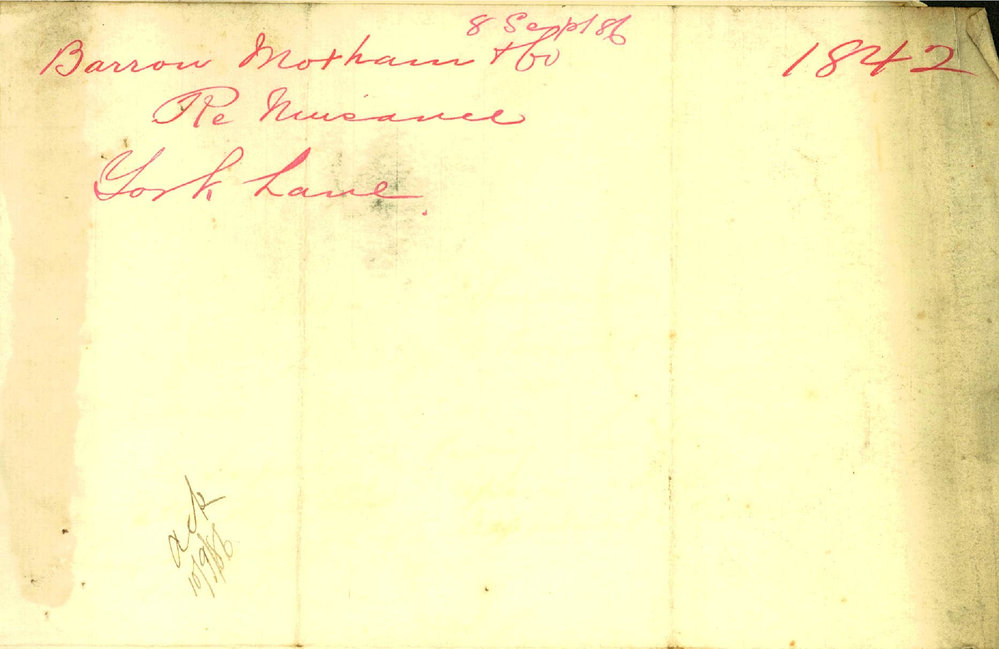 8 Sept 86
Barrow Moxham & Co 1842
Re Nuisance
York Lane
ack
10/9/86